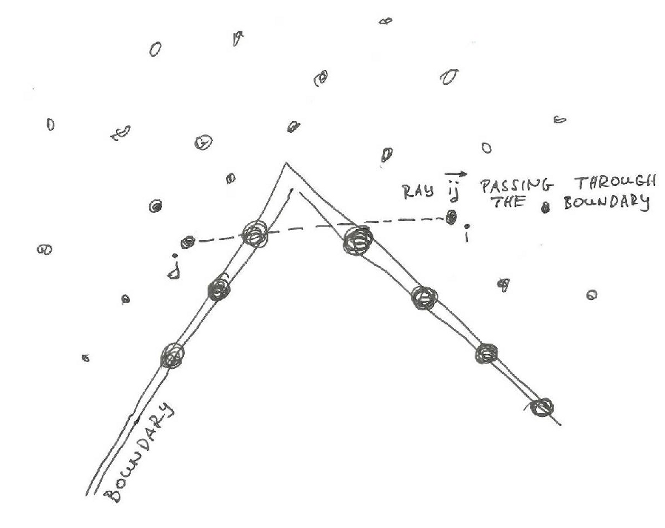 RAY ij PASSING THROUGH
THE BOUNDARY
i
j
BOUNDARY